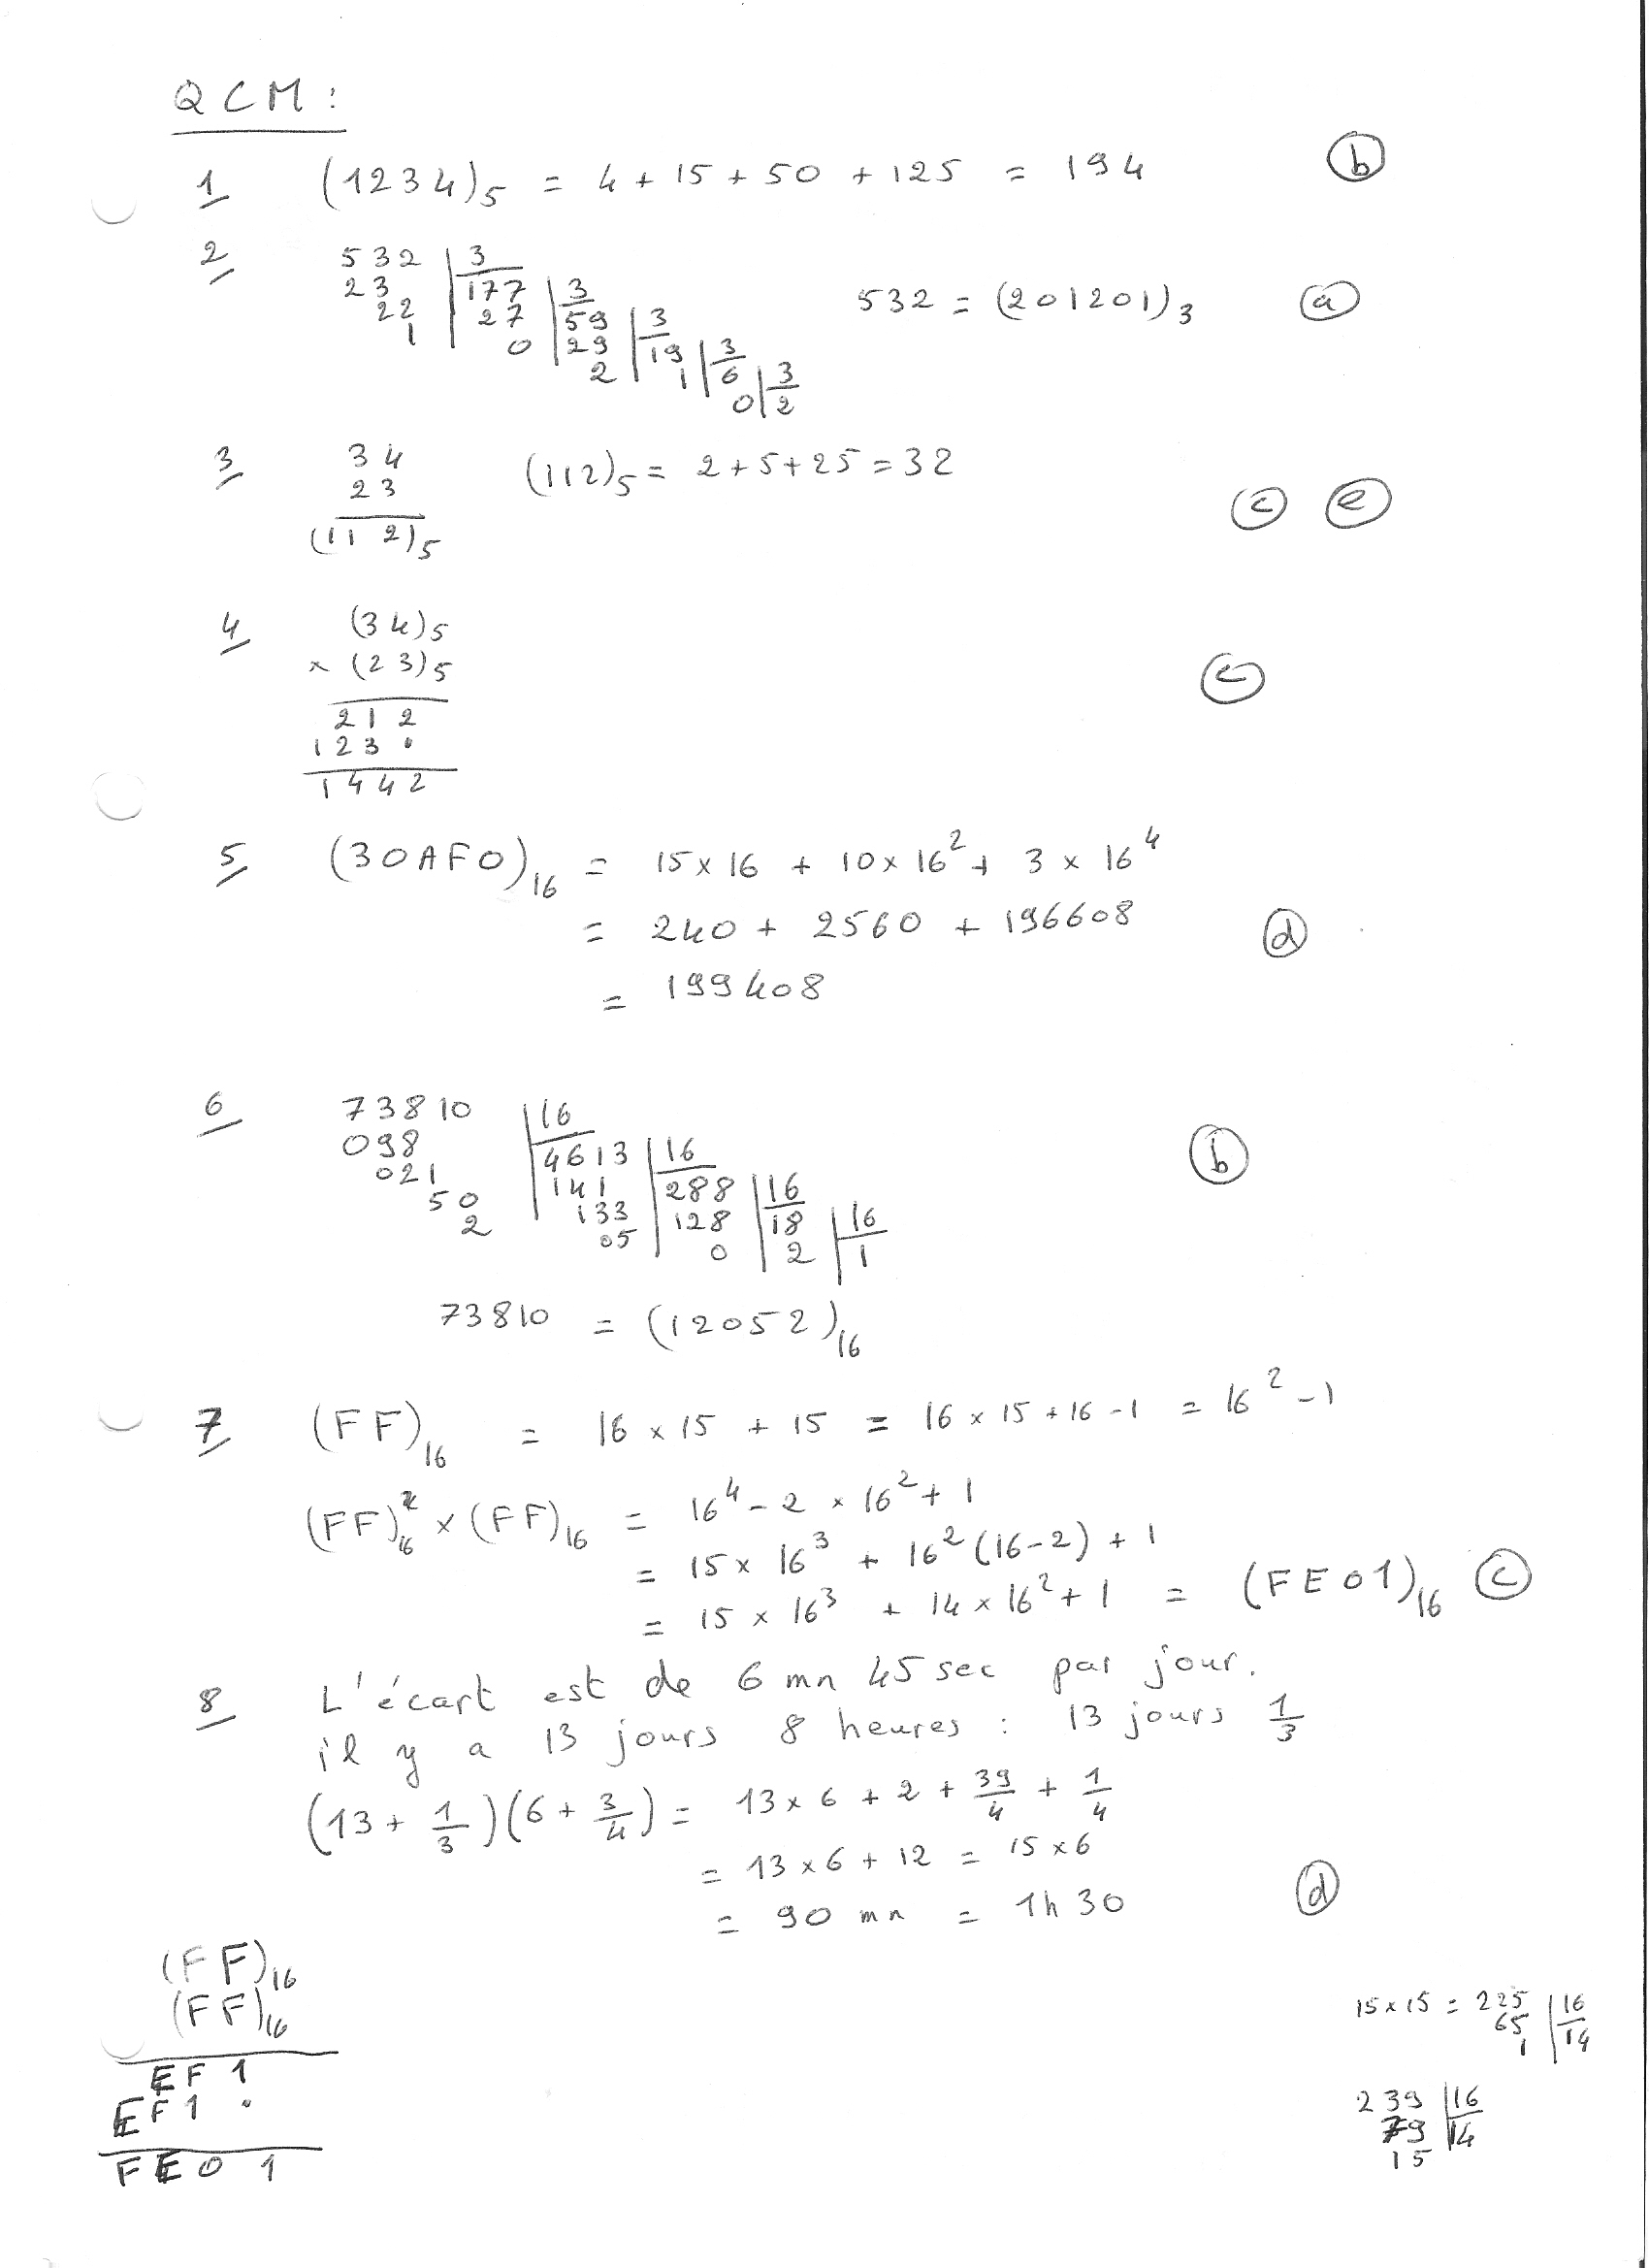 QCM :
1 (1234)5 = 4 + 15 + 50 + 125 = 194 b
2 532 | 3
23 | 177 | 3
22 | 27 | 59 | 3
1 | 0 | 29 | 19 | 3
2 | 1 | 6 | 3
0 | 2
532 = (201201)3 a
3 34
23
(112)5
(112)5 = 2+5+25 = 32
c e
4 (34)5
× (23)5
212
123 •
1442
c
5 (30AF0)16 = 15×16 + 10×16² + 3×16⁴
= 240 + 2560 + 196608 d
= 199408
6 73810 | 16
098 | 4613 | 16
021 | 141 | 288 | 16
50 | 133 | 128 | 18 | 16
2 | 05 | 0 | 2 | 1
b
73810 = (12052)16
7 (FF)16 = 16×15 + 15 = 16×15+16-1 = 16²-1
(FF)16 × (FF)16 = 16⁴ - 2×16² + 1
= 15×16³ + 16²(16-2) + 1
= 15×16³ + 14×16² + 1 = (FE01)16 c
8 L'écart est de 6 mn 45 sec par jour.
il y a 13 jours 8 heures : 13 jours 1/3
(13 + 1/3)(6 + 3/4) = 13×6 + 2 + 39/4 + 1/4
= 13×6 + 12 = 15×6
= 90 mn = 1h30 d
(FF)16
(FF)16
EF1
EF1 •
FE01
15×15 = 225 | 16
65 | 14
1
239 | 16
79 | 14
15